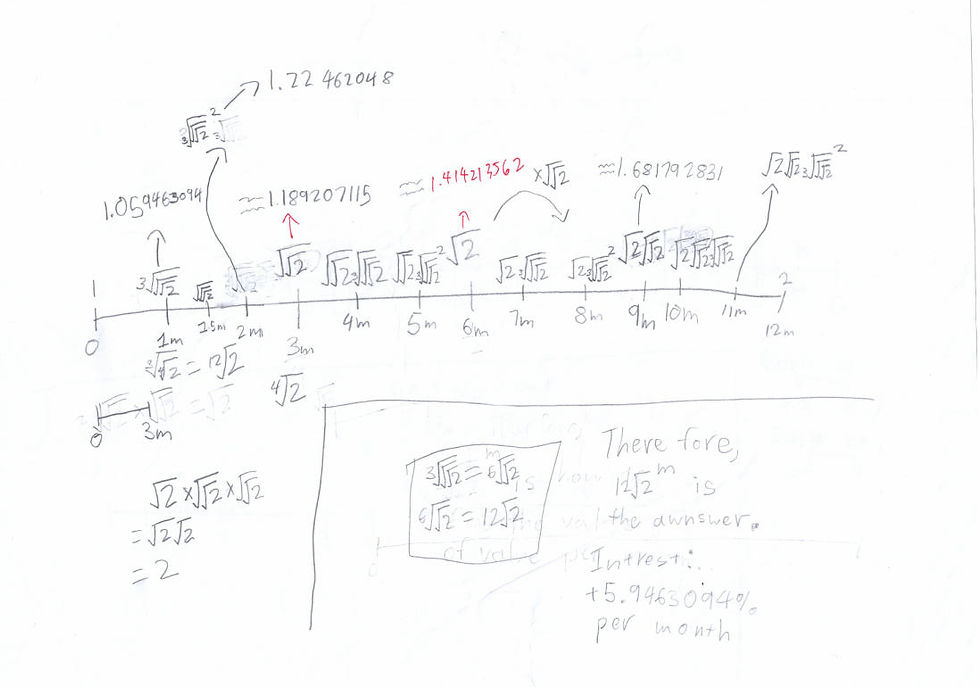 1.22462048
³√√√2²
1.059463094
≈1.189207115
≈1.414213562
×√√2
≈1.681792831
√2√√2³√√√2²
³√√√2
√√2
√√2³√√√2
√√2³√√√2²
√2
√2³√√√2
√2³√√√2²
√2√√2
√2√√2³√√√2
1
2
0
1m
1.5m
2m
3m
4m
5m
6m
7m
8m
9m
10m
11m
12m
= 12√2
⁴√2
0
3m
√2×√√2×√√2
=√2√2
=2
³√√√2=6√√2
6√√2=12√2
There fore,
12√2ᵐ is
the awnswer.
Intrest:
+5.9463094%
per month